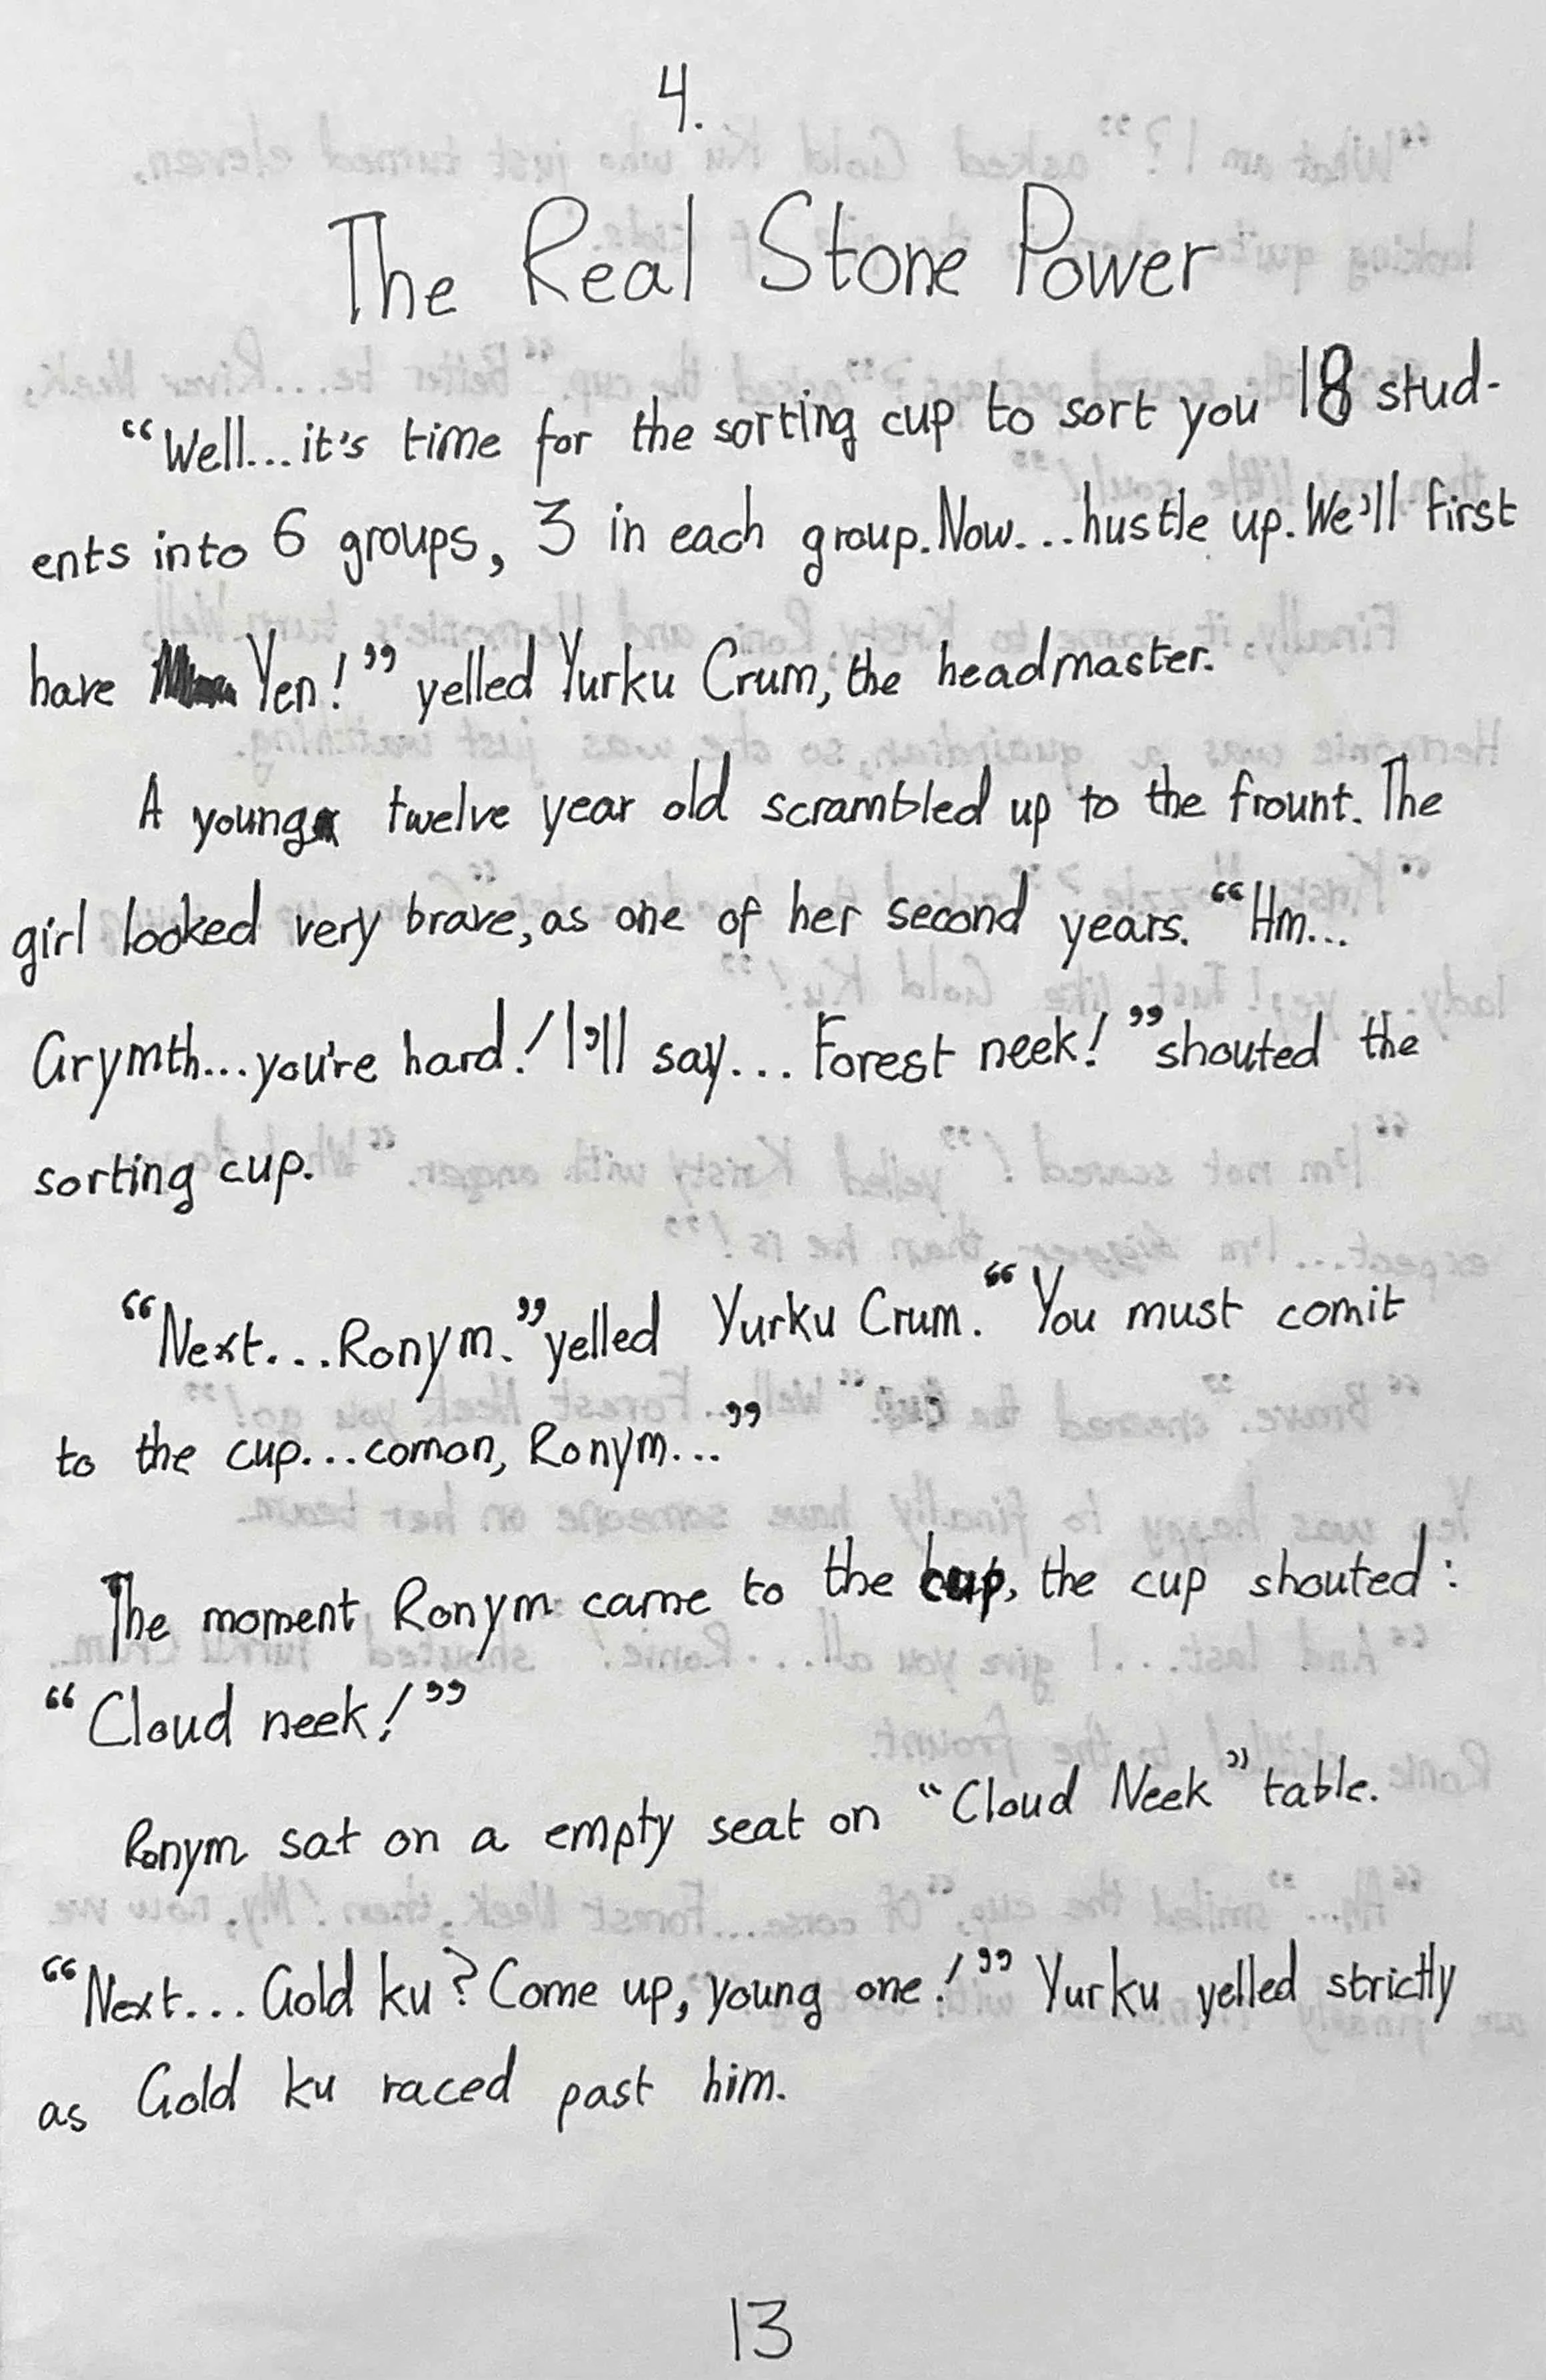 4.
The Real Stone Power
“Well...it's time for the sorting cup to sort you 18 stud-
ents into 6 groups, 3 in each group. Now...hustle up. We'll first
have Yen!” yelled Yurku Crum, the headmaster.
A young twelve year old scrambled up to the frount. The
girl looked very brave, as one of her second years. “Hm...
Grymth...you're hard! I'll say... Forest neek!” shouted the
sorting cup.
“Next...Ronym.” yelled Yurku Crum. “You must comit
to the cup...comon, Ronym...”
The moment Ronym came to the cup, the cup shouted:
“Cloud neek!”
Ronym sat on a empty seat on “Cloud Neek” table.
“Next... Gold ku? Come up, young one!” Yurku yelled strictly
as Gold ku raced past him.
13